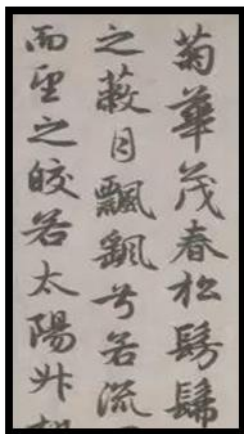 菊華茂春松髣髴
之蔽月飄飖兮若流
而望之皎若太陽升